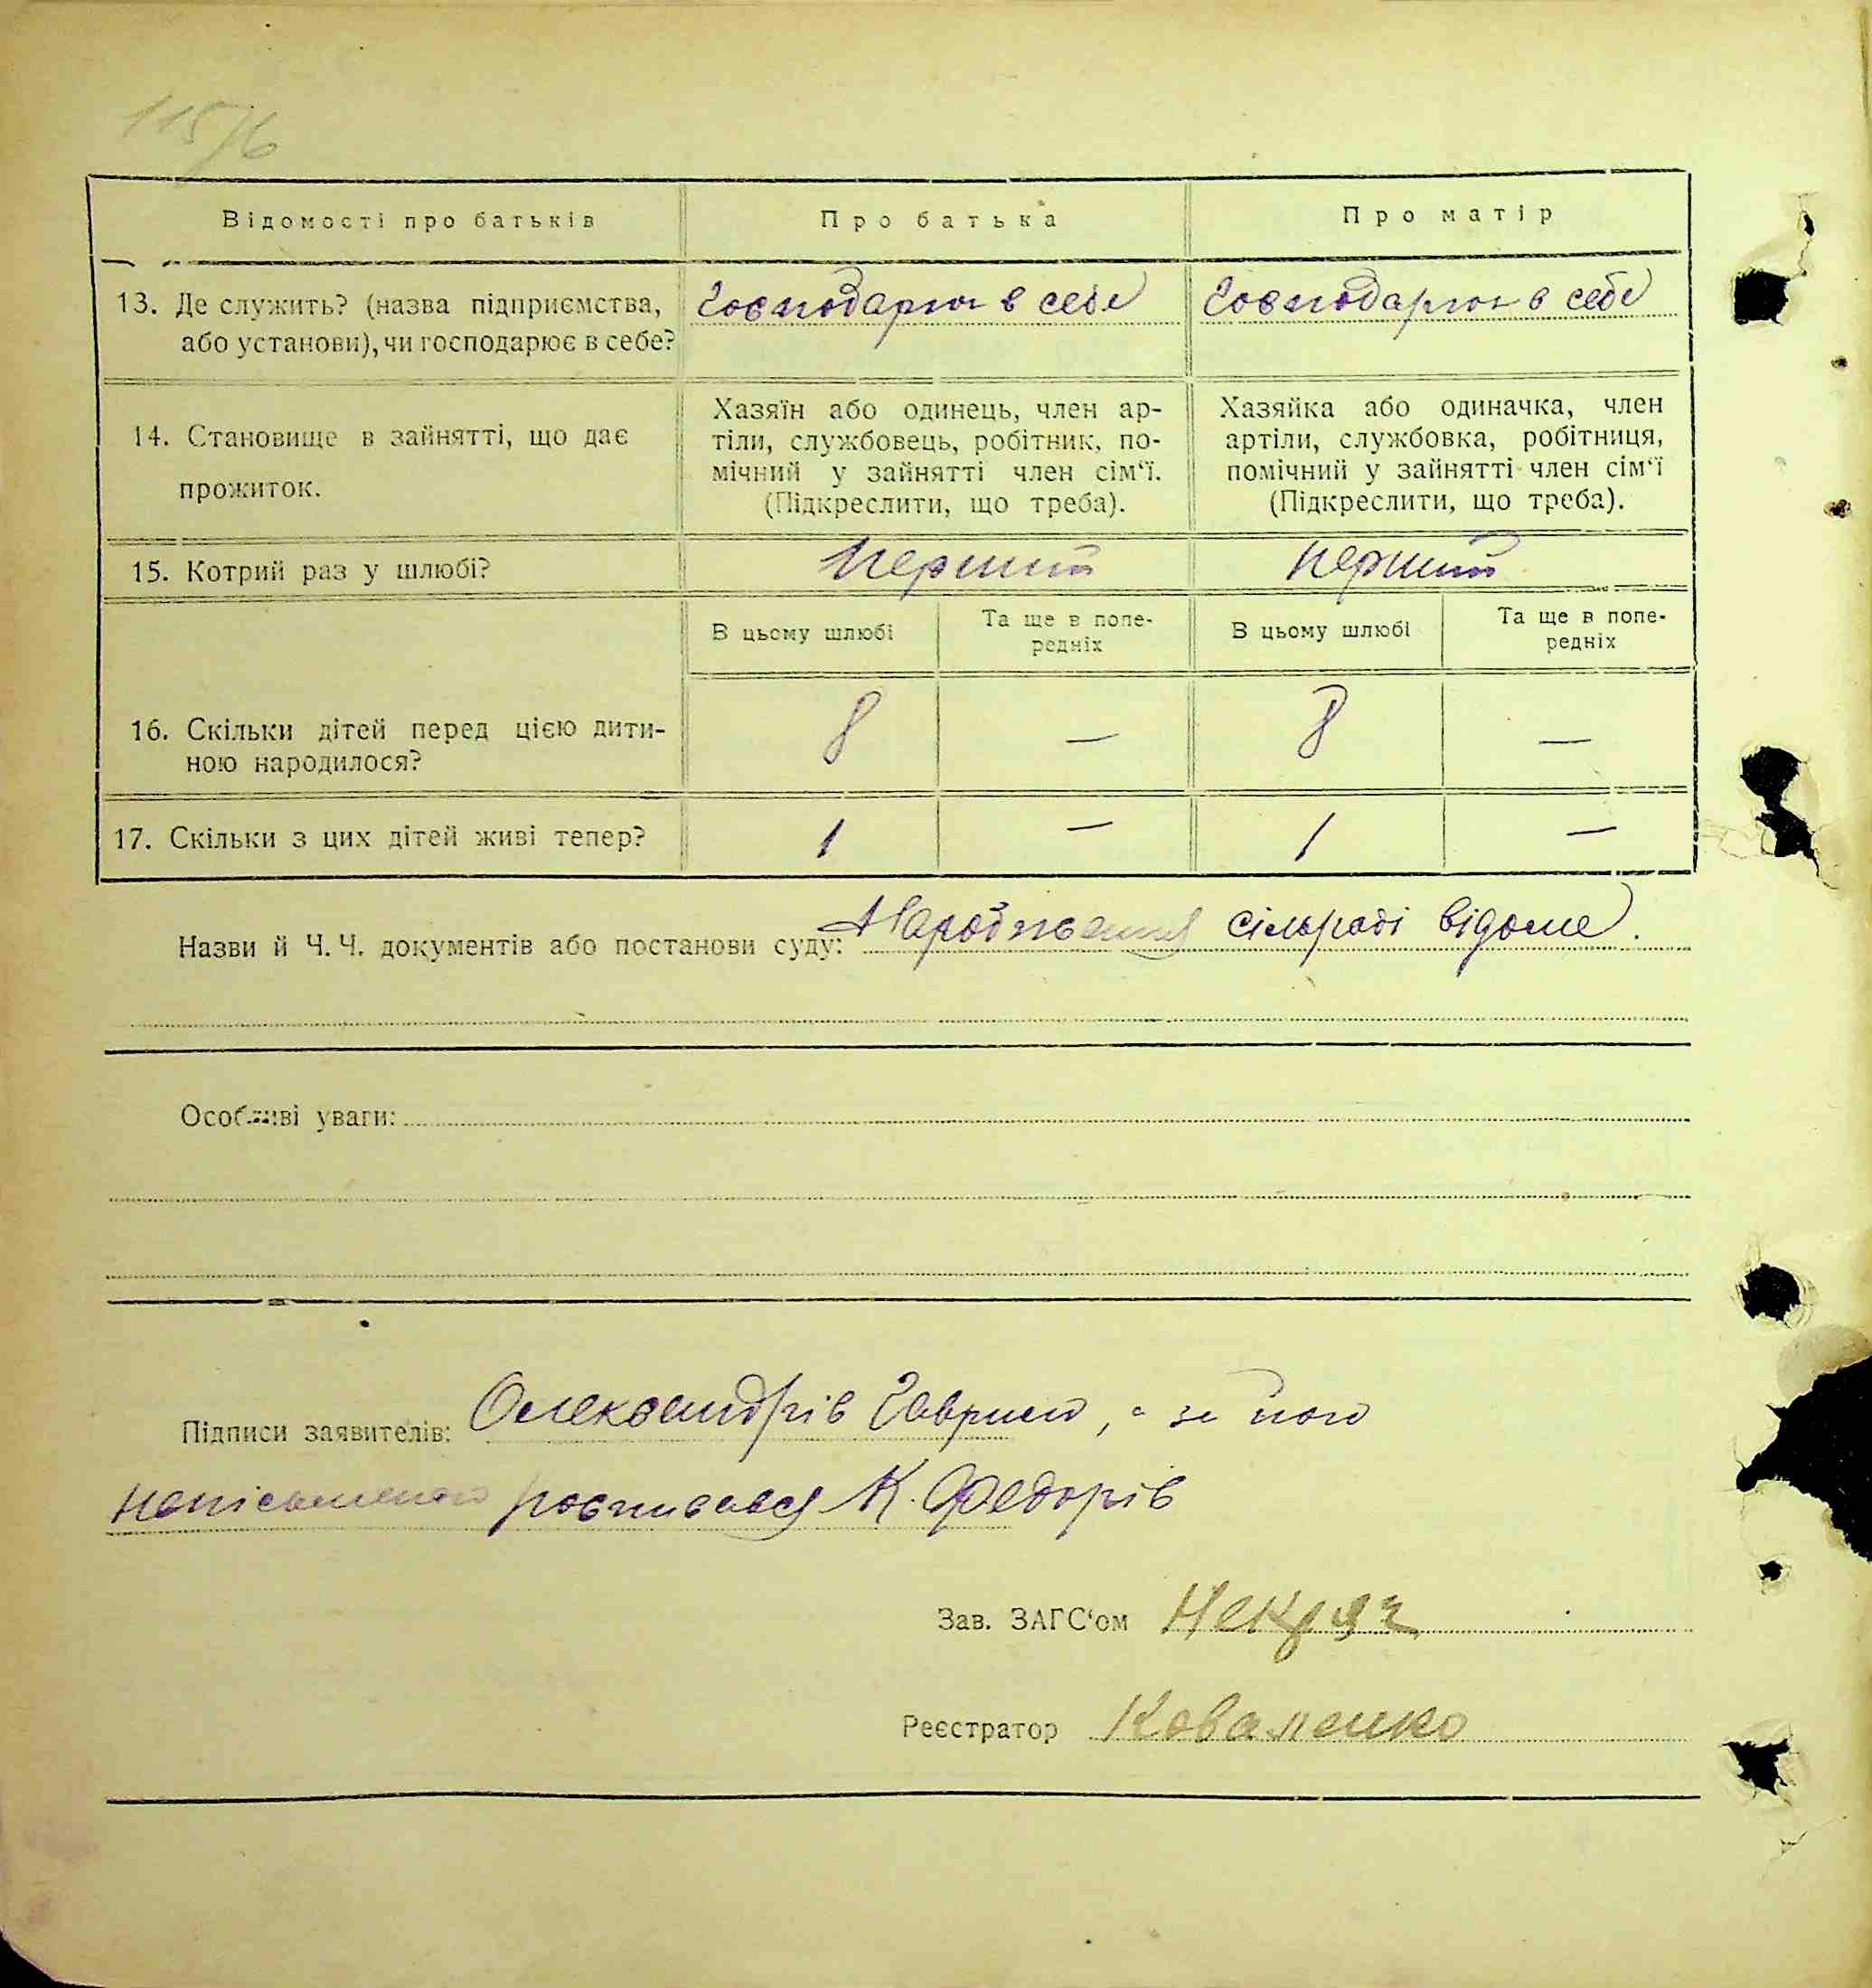 115/6
Відомості про батьків
Про батька
Про матір
13. Де служить? (назва підприємства, або установи), чи господарює в себе?
Господарює в себе
Господарює в себе
14. Становище в зайнятті, що дає прожиток.
Хазяїн або одинець, член ар-
тіли, службовець, робітник, по-
мічний у зайнятті член сім‘ї.
(Підкреслити, що треба).
Хазяйка або одиначка, член
артіли, службовка, робітниця,
помічний у зайнятті член сім‘ї
(Підкреслити, що треба).
15. Котрий раз у шлюбі?
перший
перший
В цьому шлюбі
Та ще в попе-
редніх
В цьому шлюбі
Та ще в попе-
редніх
16. Скільки дітей перед цією дити-
ною народилося?
8 — 8 —
17. Скільки з цих дітей живі тепер?
1 — 1 —
Назви й Ч. Ч. документів або постанови суду: Народження сільраді відоме.
Особливі уваги:
Підписи заявителів: Олександрів Гаврило, а за його
неписьменого росписався К. Федорів
Зав. ЗАГС‘ом
Реєстратор Коваленко